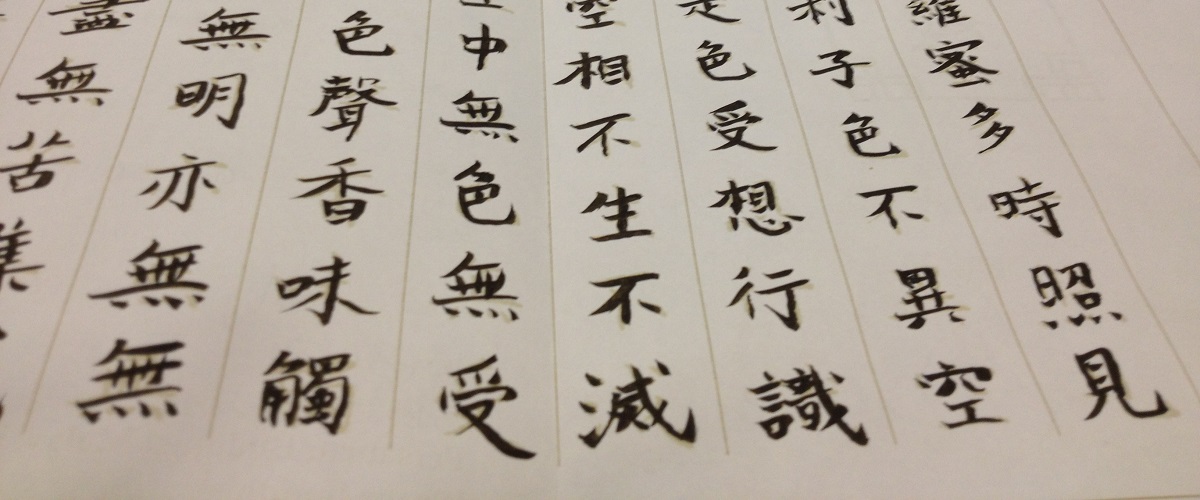 羅蜜多時照見
利子色不異空
是色受想行識
空相不生不滅
空中無色無受
色聲香味觸
無明亦無無
盡無苦集